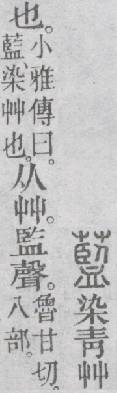 藍染青艸
也。小雅傳曰。藍、染艸也。从艸。監聲。魯甘切。八部。